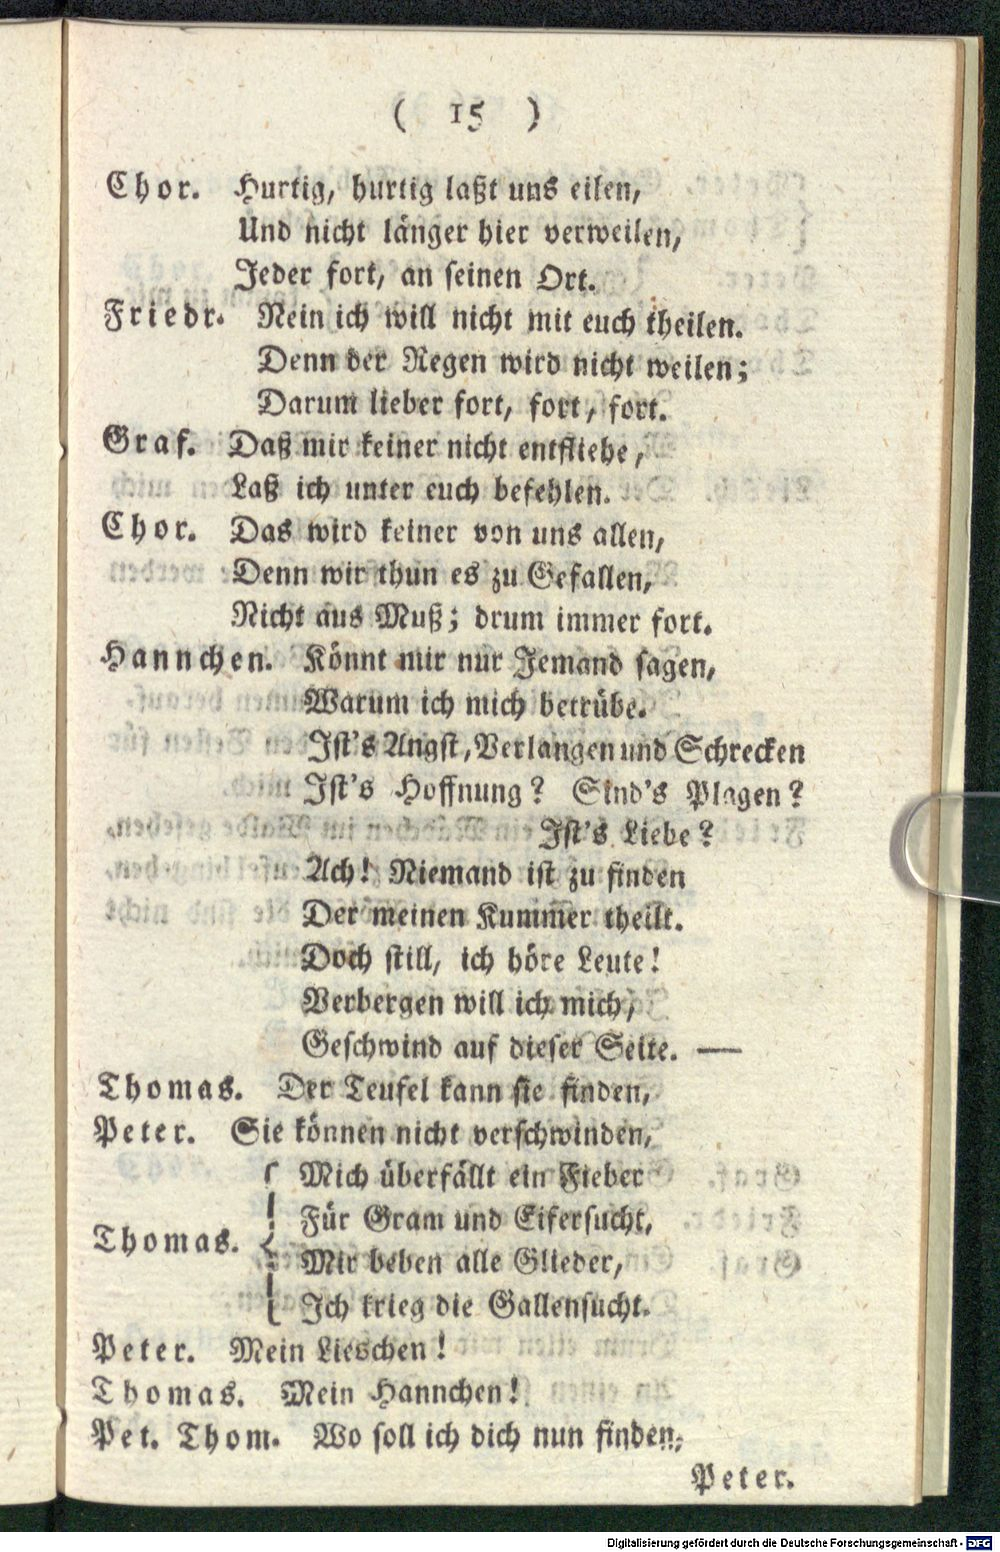 ( 15 )
Chor. Hurtig, hurtig laßt uns eilen,
Und nicht länger hier verweilen,
Jeder fort, an seinen Ort.
Friedr. Nein ich will nicht mit euch theilen.
Denn der Regen wird nicht weilen;
Darum lieber fort, fort, fort.
Graf. Daß mir keiner nicht entfliehe,
Laß ich unter euch befehlen.
Chor. Das wird keiner von uns allen,
Denn wir thun es zu Gefallen,
Nicht aus Muß; drum immer fort.
Hannchen. Könnt mir nur Jemand sagen,
Warum ich mich betrübe.
Ist's Angst, Verlangen und Schrecken
Ist's Hoffnung? Sind's Plagen?
Ist's Liebe?
Ach! Niemand ist zu finden
Der meinen Kummer theilt.
Doch still, ich höre Leute!
Verbergen will ich mich,
Geschwind auf dieser Seite. —
Thomas. Der Teufel kann sie finden,
Peter. Sie können nicht verschwinden,
Mich überfällt ein Fieber
Für Gram und Eifersucht,
Thomas. Mir beben alle Glieder,
Ich krieg die Gallensucht.
Peter. Mein Lieschen!
Thomas. Mein Hannchen!
Pet. Thom. Wo soll ich dich nun finden,
Peter.
Digitalisierung gefördert durch die Deutsche Forschungsgemeinschaft - DFG